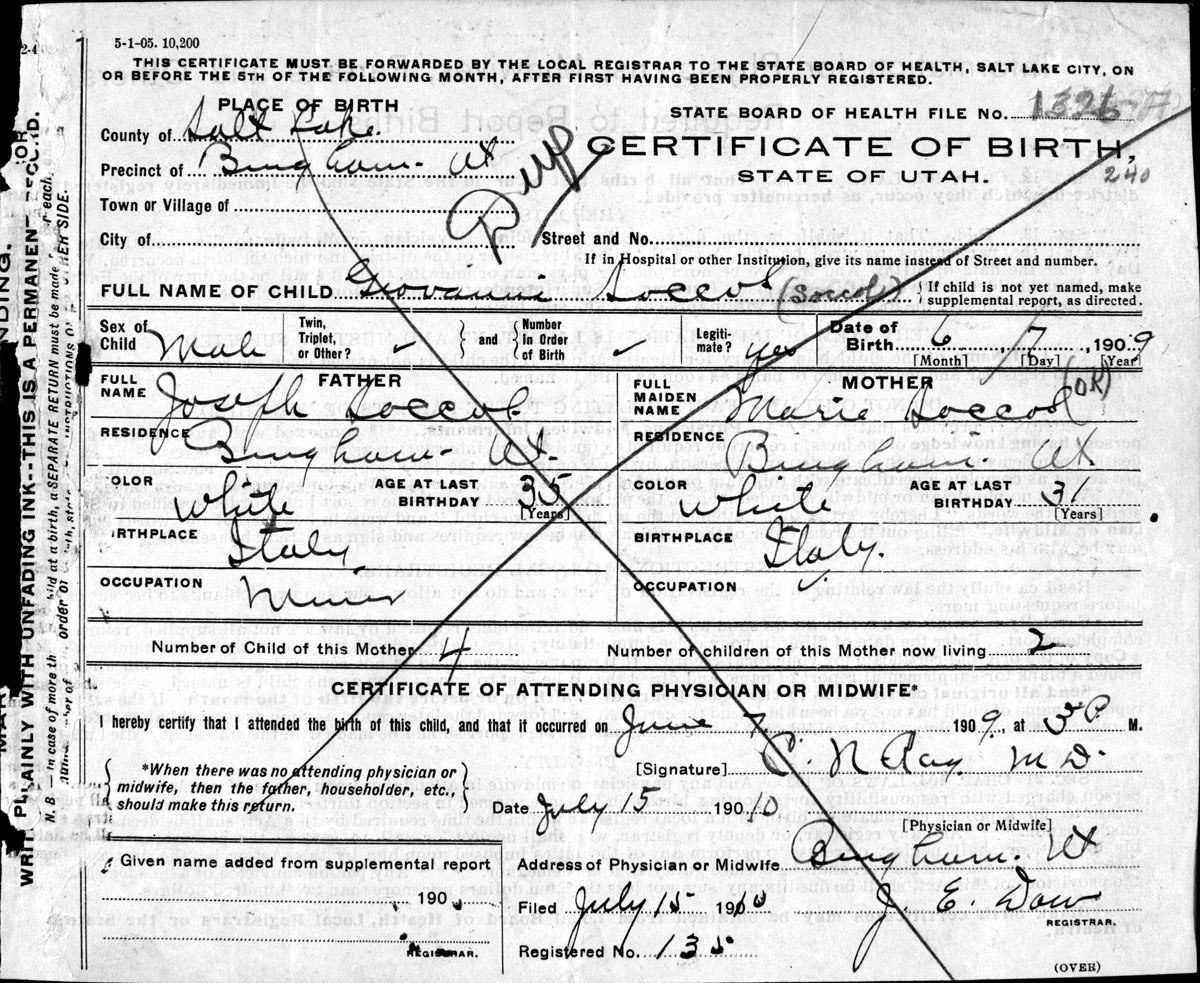 5-1-05. 10,200
THIS CERTIFICATE MUST BE FORWARDED BY THE LOCAL REGISTRAR TO THE STATE BOARD OF HEALTH, SALT LAKE CITY, ON
OR BEFORE THE 5TH OF THE FOLLOWING MONTH, AFTER FIRST HAVING BEEN PROPERLY REGISTERED.
PLACE OF BIRTH
STATE BOARD OF HEALTH FILE No. 1326-A
County of Salt Lake
CERTIFICATE OF BIRTH,
Precinct of Bingham - Ut
STATE OF UTAH.
240
Town or Village of
City of
Street and No.
If in Hospital or other Institution, give its name instead of Street and number.
FULL NAME OF CHILD Giovanni Soccol (Soccol) { If child is not yet named, make
supplemental report, as directed.
Sex of Child Male
Twin, Triplet, or Other? ✓ and Number In Order of Birth ✓
Legitimate? yes
Date of Birth 6, 7, 1909
[Month] [Day] [Year]
FATHER
FULL NAME Joseph Soccol.
MOTHER
FULL MAIDEN NAME Marie Soccol (OK)
RESIDENCE Bingham - Ut.
RESIDENCE Bingham - Ut
OLOR White
AGE AT LAST BIRTHDAY 35 [Years]
COLOR White
AGE AT LAST BIRTHDAY [Years]
IRTHPLACE Italy
BIRTHPLACE Italy.
OCCUPATION Miner
OCCUPATION ✓
Number of Child of this Mother 4
Number of children of this Mother now living 2
CERTIFICATE OF ATTENDING PHYSICIAN OR MIDWIFE*
I hereby certify that I attended the birth of this child, and that it occurred on June 7, 1909, at P. M.
*When there was no attending physician or
midwife, then the father, householder, etc.,
should make this return.
[Signature] C. N. Ray M D.
Date July 15 1910
[Physician or Midwife]
Given name added from supplemental report
190
REGISTRAR.
Address of Physician or Midwife Bingham. Ut
Filed July 15 1910 J. E. Dow
REGISTRAR.
Registered No. 135
(OVER)
WRITE PLAINLY WITH UNFADING INK--THIS IS A PERMANENT RECORD.
N. B. — In case of more th child at a birth, a SEPARATE RETURN must be made for each,